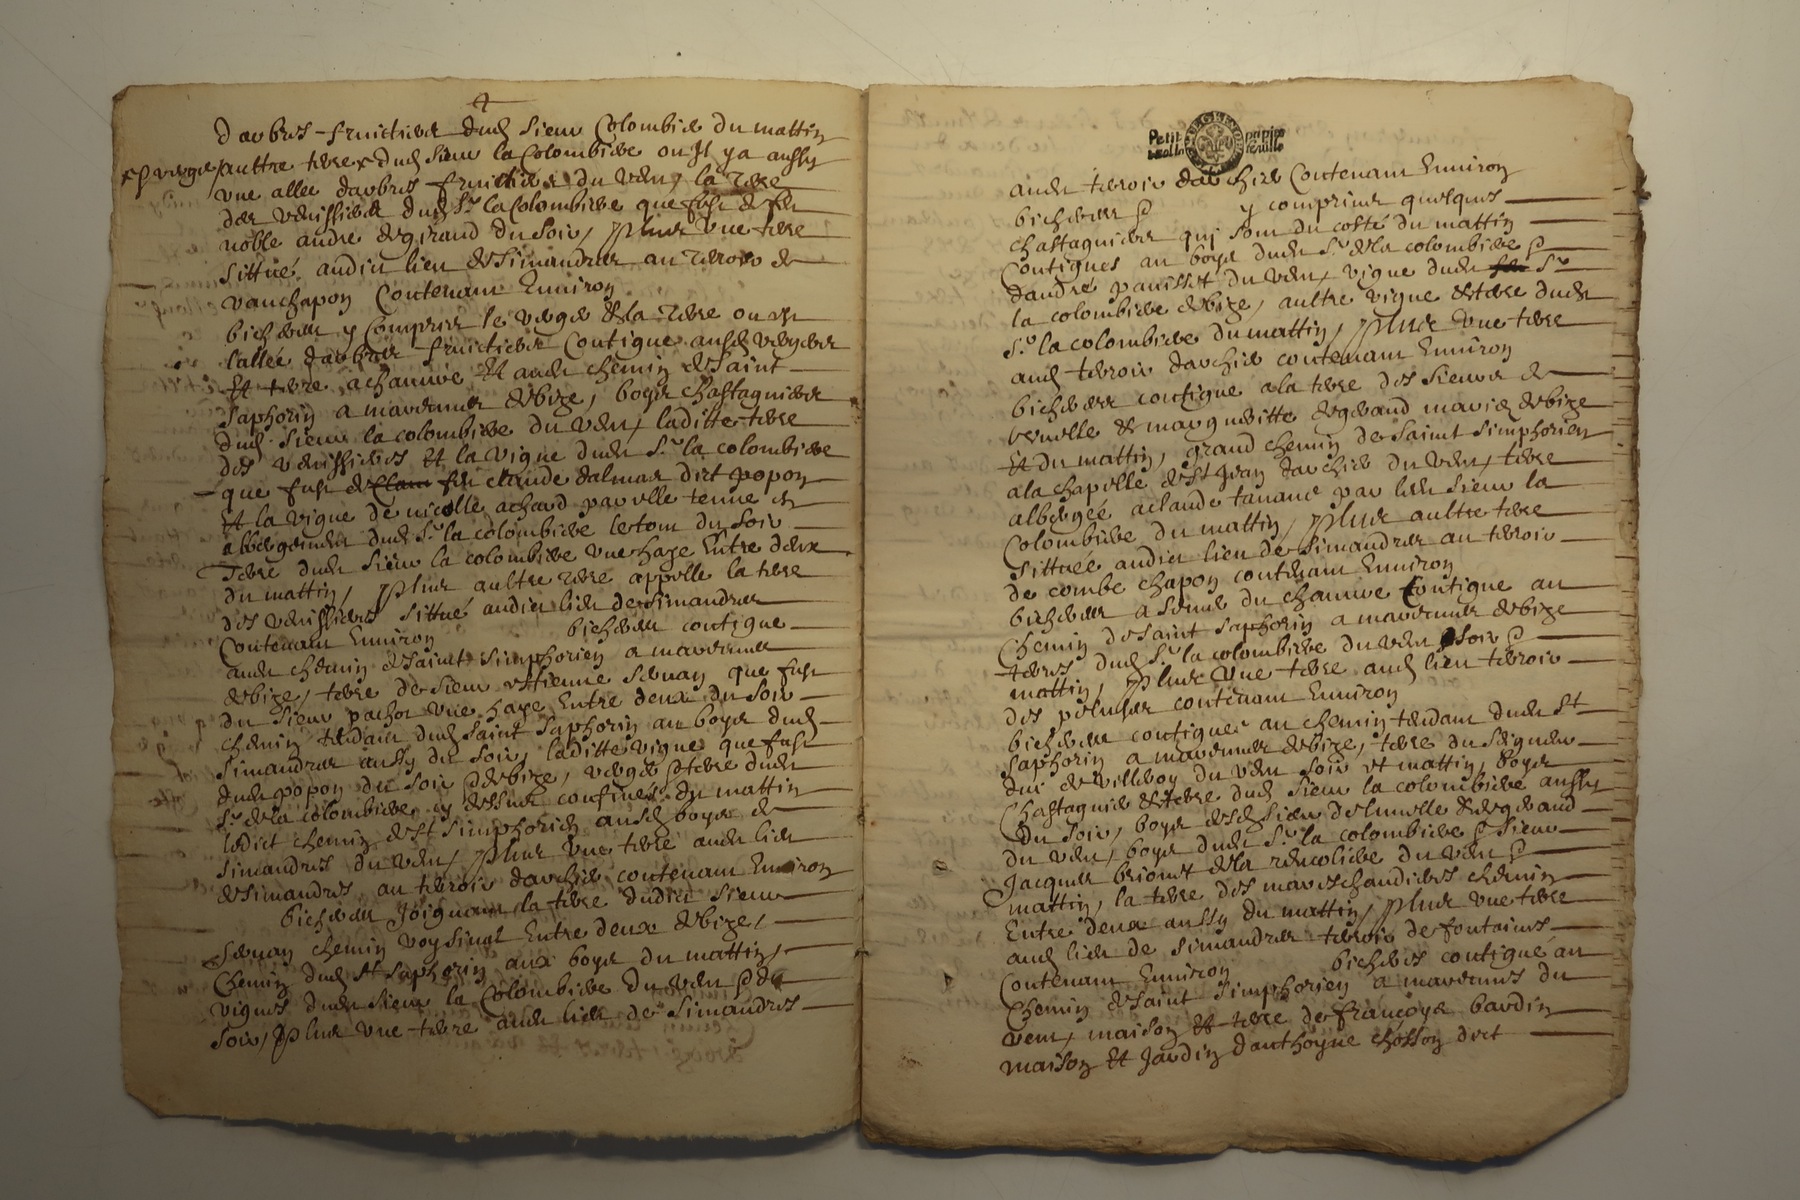 4
d'arbres fruictiers dud sieur Colombier du mattin
x & verger / aultre terre x dud sieur la Colombiere ou Il y a aussy
vne allee darbres fruictiers du vent, la terre
des verissieres dud Sr la Colombiere que fust de feu
noble andre degirand du soir, plus vne terre
sittué audict lieu de Simandres au terroir de
vauchapon Contenant Enuiron
bicherees y Compris le verger de la terre ou est
l'allée darbres fruictiers Contigue ausd vergers
Et terre a chanure Et aude chemin de Saint
Saphorin a marennes de bize, boys Chastagniers
dud sieur la colombiere du vent, laditte terre
des verissieres Et la vigne dude Sr la colombiere
que fust de feu claude dalmas dict popon
Et la vigne de nicolle achard par elle tenue en
albergement dud Sr la colombiere le tout du soir
Terre dude sieur la colombiere vne haye Entre deux
du mattin, plus aultre terre appelle la terre
des verissieres sittué audict lieu de Simandres
Contenant Enuiron bicherees contigue
aude chemin de saint simphorien a marennes
de bize, terre de sieur estienne que fust
du sieur pachot vne haye Entre deux du soir
chemin tendant dud saint Saphorin au boys dud
Simandres aussy du soir, laditte vigne que fust
dude popon du soir & de bize, verger & terre dude
Sr de la colombiere cy dessus confines du mattin
ledict chemin de St simphorien ausd boys de
simandres du vent, plus vne terre aude lieu
de simandres au terroir darchier contenant Enuiron
bicherees Joignant la terre dudict sieur
chemin voysinal Entre deux de bize,
Chemin dud St Saphorin aux boys du mattin,
vignes dude sieur la Colombiere du vent & du
soir, plus vne terre aude lieu de Simandres
Petit papier
feuille
aude terroir darchier Contenant Enuiron
bicherees & y comprins quelques
chastagniers qui sont du costé du mattin
Contigues au boys dude Sr de la colombiere &
dandre du vent, vigne dude Sr
la colombiere de bize, aultre vigne & terre dude
Sr la colombiere du mattin, plus vne terre
aud terroir darchier contenant Enuiron
bicherees contigue a la terre des sieurs de
& margueritte degerand maries de bize
Et du mattin, grand chemin de saint simphorien
a la chapelle de St Jean darchier du vent, terre
albergée a claude par led sieur la
Colombiere du mattin, plus aultre terre
sittuée audict lieu de Simandres au terroir
de combe chapon contenant Enuiron
bicherees a seme du chanure Contigue au
Chemin de saint Saphorin a marennes de bize
terres dud Sr la colombiere du vent soir &
mattin, plus vne terre aud lieu terroir
des contenant Enuiron
bicherees contigue au chemin tendant dude St
Saphorin a marennes de bize, terre du seigneur
duc de villeroy du vent soir et mattin, boys
Chastagnier & terre dud sieur la colombiere aussy
du soir, boys desd sieur & degerand
du vent, boys dude Sr la colombiere & sieur
Jacques de la du vent &
mattin, la terre des mareschandieres chemin
Entre deux aussy du mattin, plus vne terre
aud lieu de Simandres terroir de fontaines
Contenant Enuiron bicherees contigue au
chemin de saint simphorien a marennes du
vent, maison Et terre de françoys bardin
maison Et Jardin danthoyne chosson dict